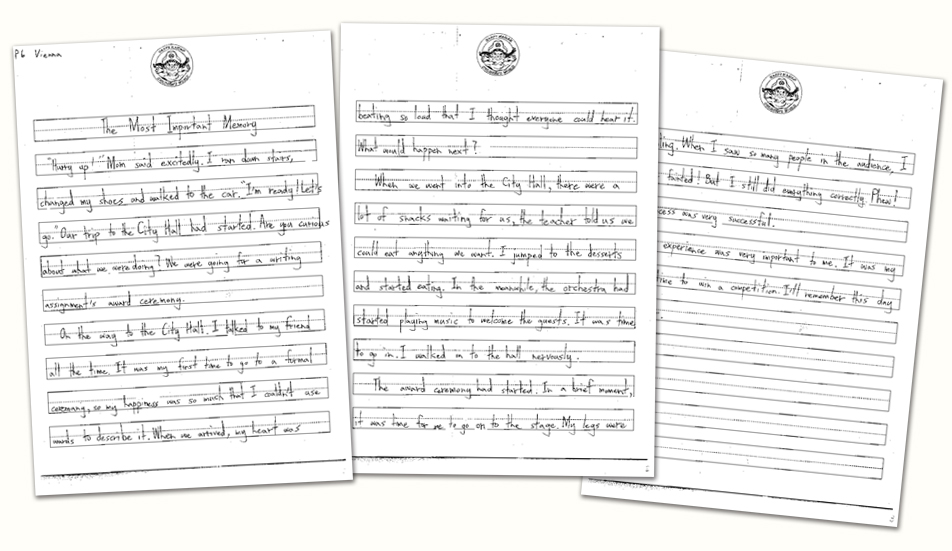 P6 Vienna
The Most Important Memory
"Hurry up!" Mom said excitedly. I ran down stairs,
changed my shoes and walked to the car. "I'm ready! Let's
go." Our trip to the City Hall had started. Are you curious
about what we were doing? We were going for a writing
assignment's award ceremony.
On the way to the City Hall. I talked to my friend
all the time. It was my first time to go to a formal
ceremony, so my happiness was so much that I couldn't use
words to describe it. When we arrived, my heart was
beating so loud that I thought everyone could hear it.
What would happen next?
When we went into the City Hall, there were a
lot of snacks waiting for us, the teacher told us we
could eat anything we want. I jumped to the desserts
and started eating. In the meanwhile, the orchestra had
started playing music to welcome the guests. It was time
to go in. I walked in to the hall nervously.
The award ceremony had started. In a brief moment,
it was time for me to go on to the stage. My legs were
ing. When I saw so many people in the audience, I
fainted! But I still did everything correctly. Phew!
cess was very successful.
experience was very important to me. It was my
time to win a competition. I'll remember this day